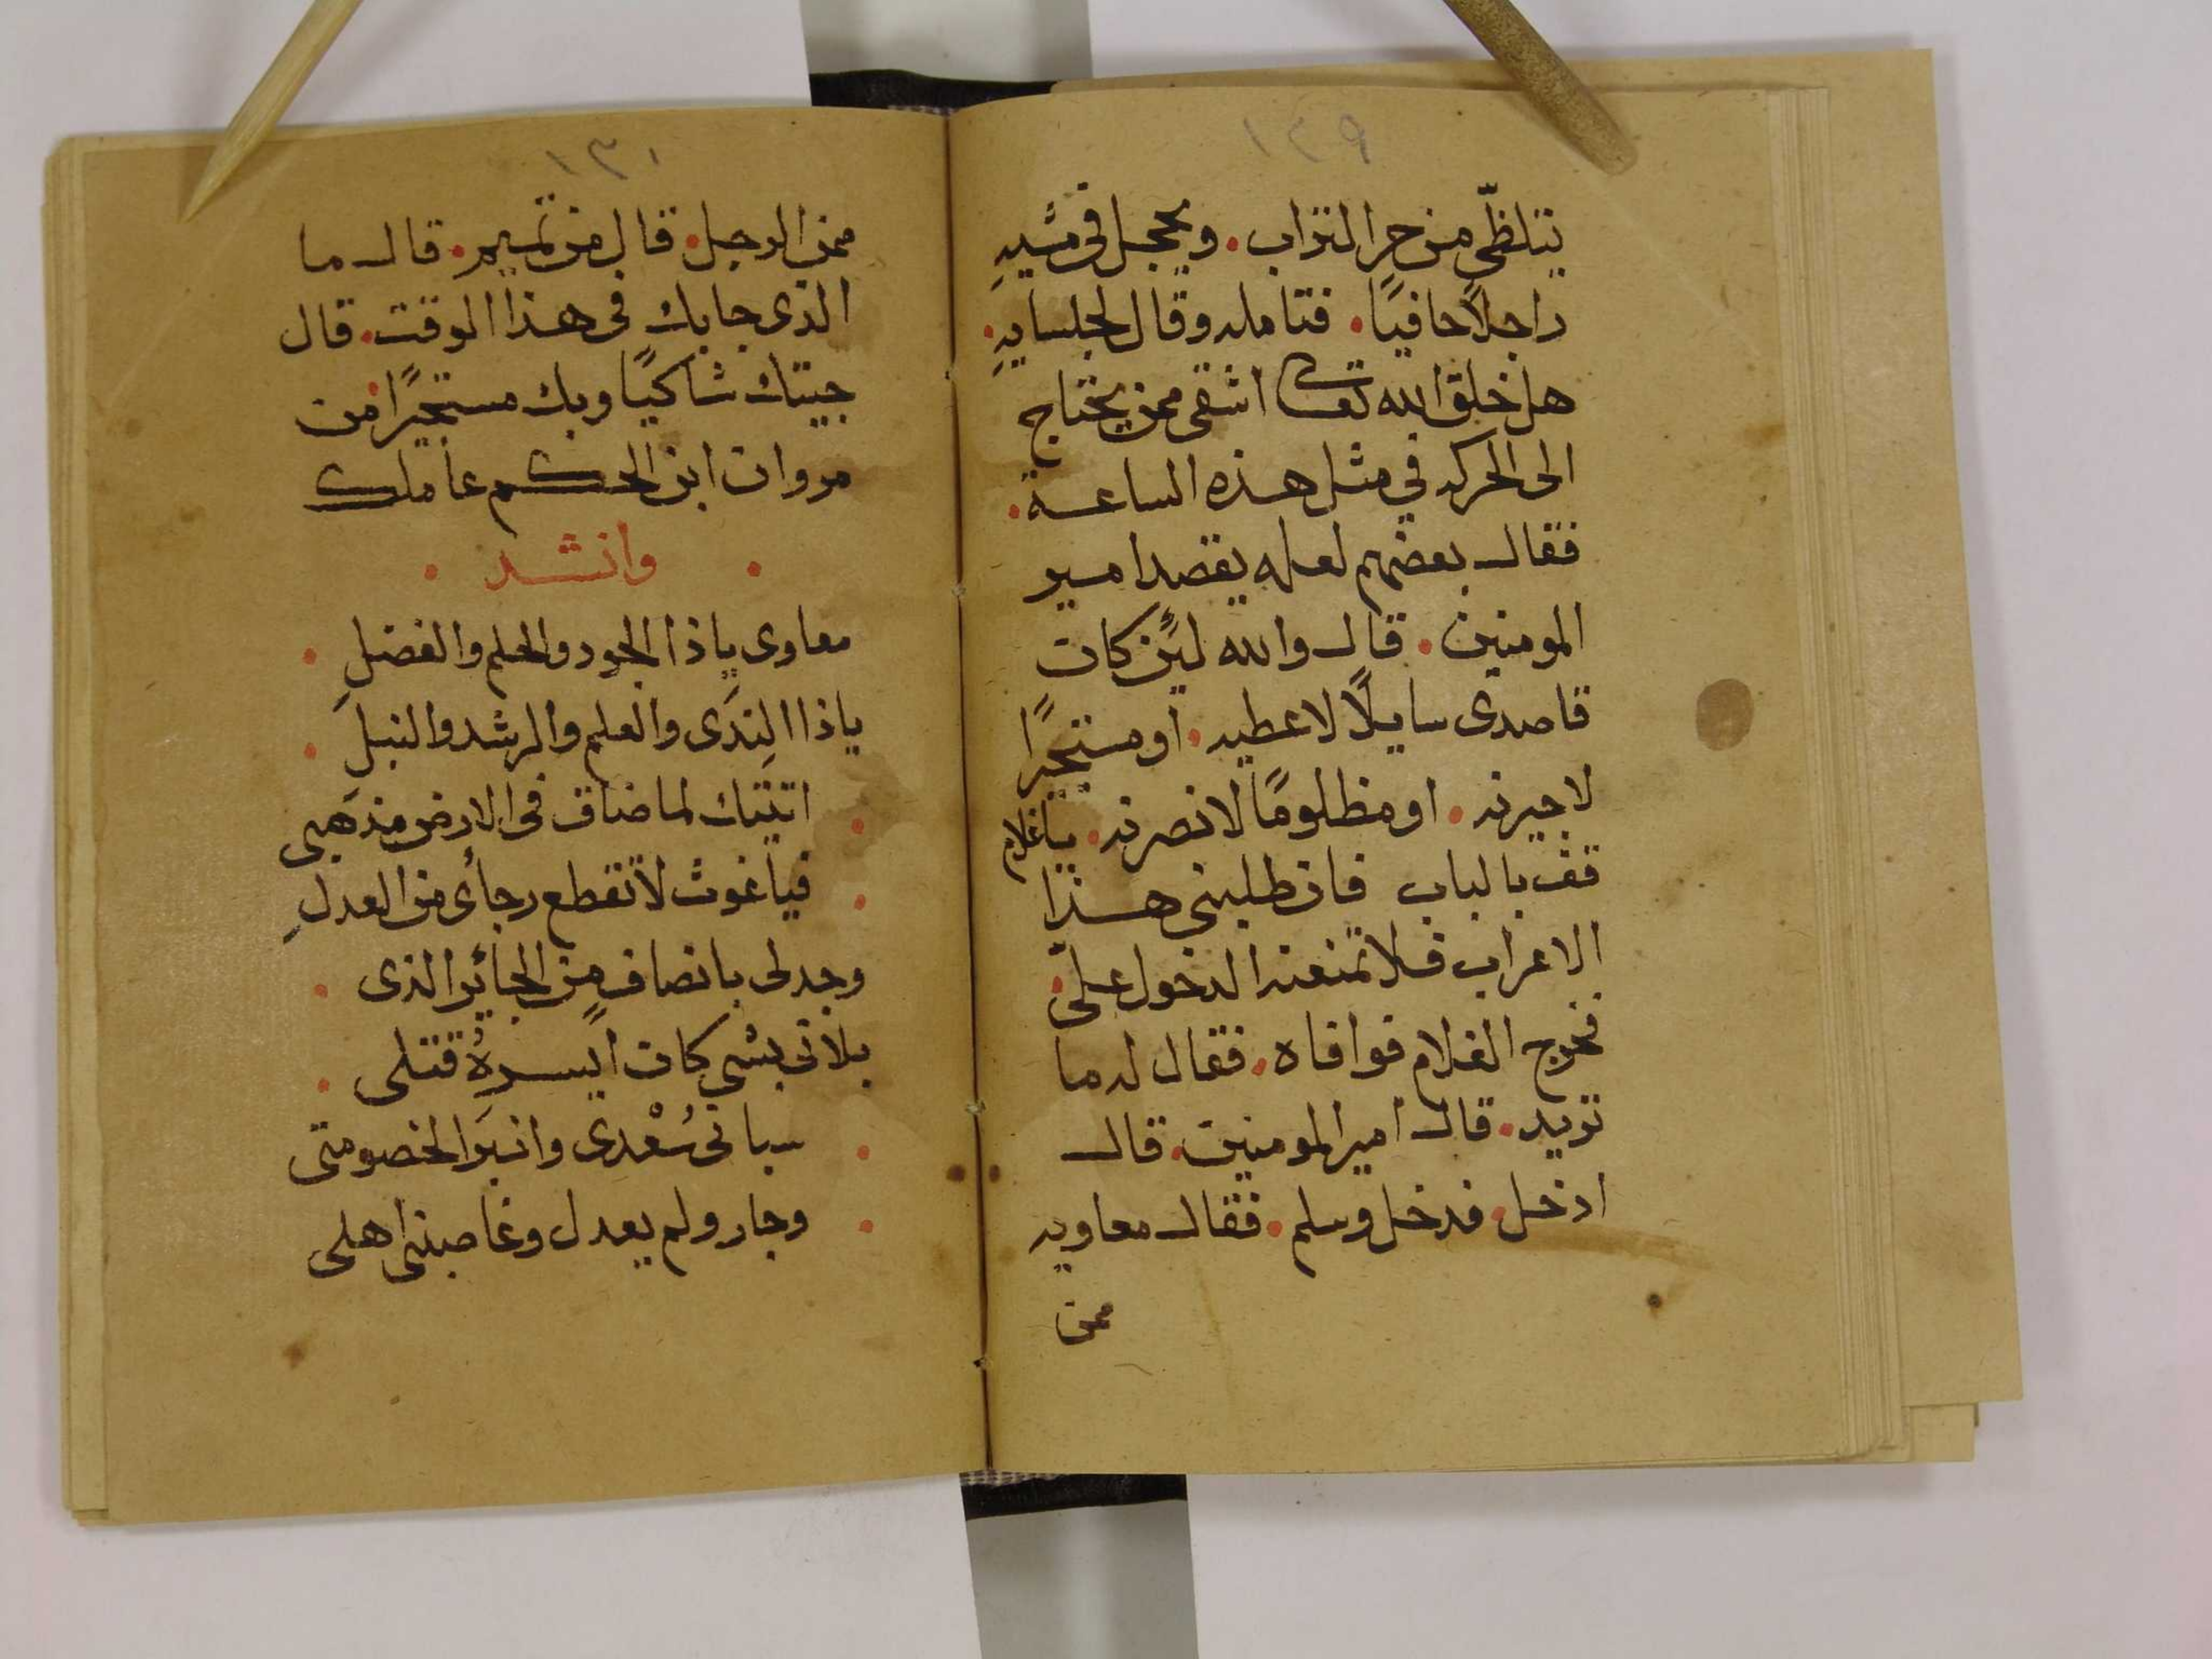 ١٢٩
يتلظّى من حر التراب. ويحجل فى مشيهِ
راجلاً حافيًا. فتامله وقال لجلسايهِ.
هل خلق الله تعالى اشقى ممن يحتاج
الى الحركه في مثل هذه الساعة.
فقال بعضهم لعله يقصد امير
المومنين. قال والله لئن كان
قاصدى سايلاً لاعطيه. او مستجيرًا
لاجيرنه. او مظلومًا لانصرنه. ياغلام
قف بالباب فان طلبنى هذا
الاعراب فلا تمنعنه الدخول علىّ.
فخرج الغلام فوافاه. فقال له ما
تريد. قال امير المومنين. قال
ادخل. فدخل وسلم. فقال معاويه
ممن
١٣٠
ممن الرجل. قال من تميم. قال ما
الذى جابك فى هذا الوقت. قال
جيتك شاكيًا وبك مستجيرًا من
مروان ابن الحكم عاملك
. وانشد .
معاوى ياذا الجود والحلم والفضلِ .
ياذا الندَى والعلم والرشد والنبلِ .
. اتيتك لما ضاق فى الارض مذهبى
. فياغوث لا تقطع رجأى من العدلِ
وجد لى بانصافٍ من الجائر الذى .
بلانى بشىٍ كان ايسرهُ قتلى .
. سبانى سُعْدى وانبَرا لخصومتى
. وجار ولم يعدل وغاصبنى اهلى